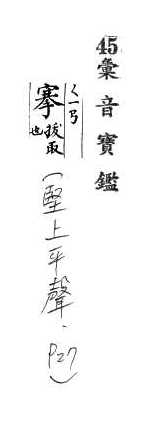 45彙音寶鑑
搴ㄑㄧㄢ拔取也
(堅上平聲. P27)